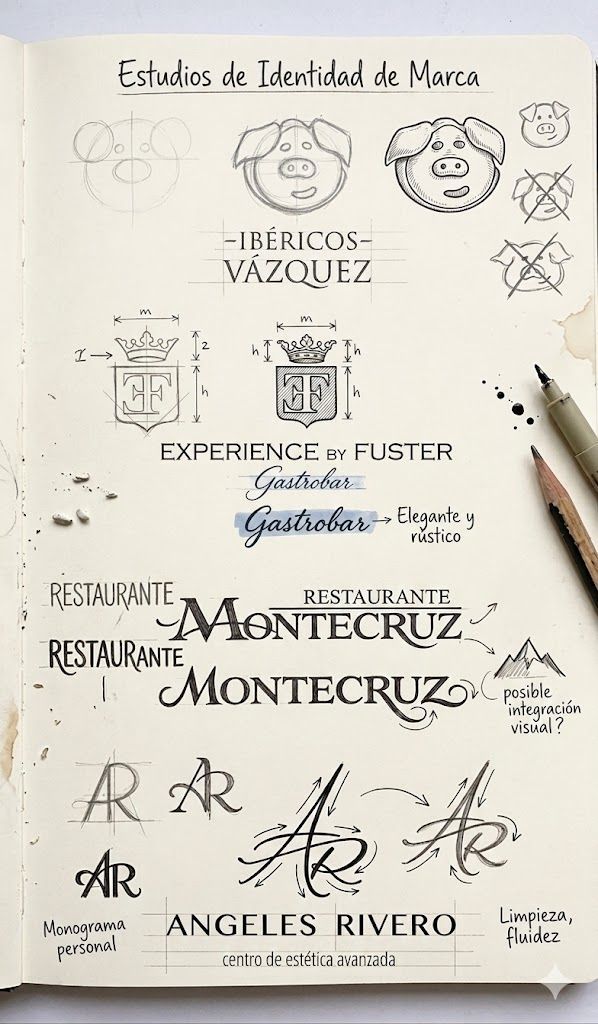 Estudios de Identidad de Marca
-IBÉRICOS-
VÁZQUEZ
m
I
2
h
EF
m
h
h
h
EF
EXPERIENCE BY FUSTER
Gastrobar
Gastrobar
Elegante y
rústico
RESTAURANTE
RESTAURANTE
MONTECRUZ
RESTAURANTE
MONTECRUZ
posible
integración
visual?
AR
AR
AR
AR
AR
Monograma
personal
ANGELES RIVERO
centro de estética avanzada
Limpieza,
fluidez